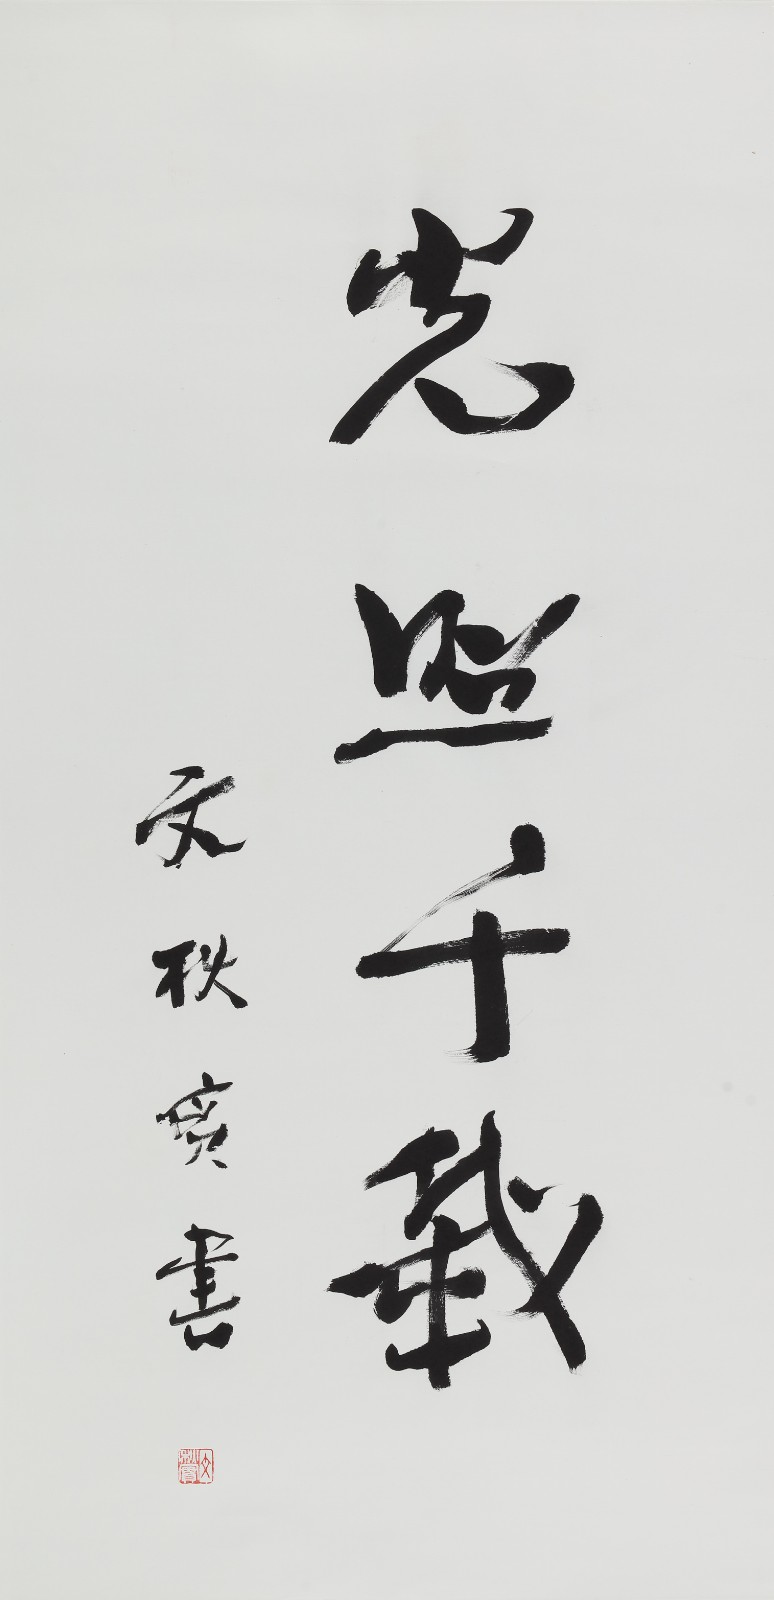 光照千載
文秋寅書